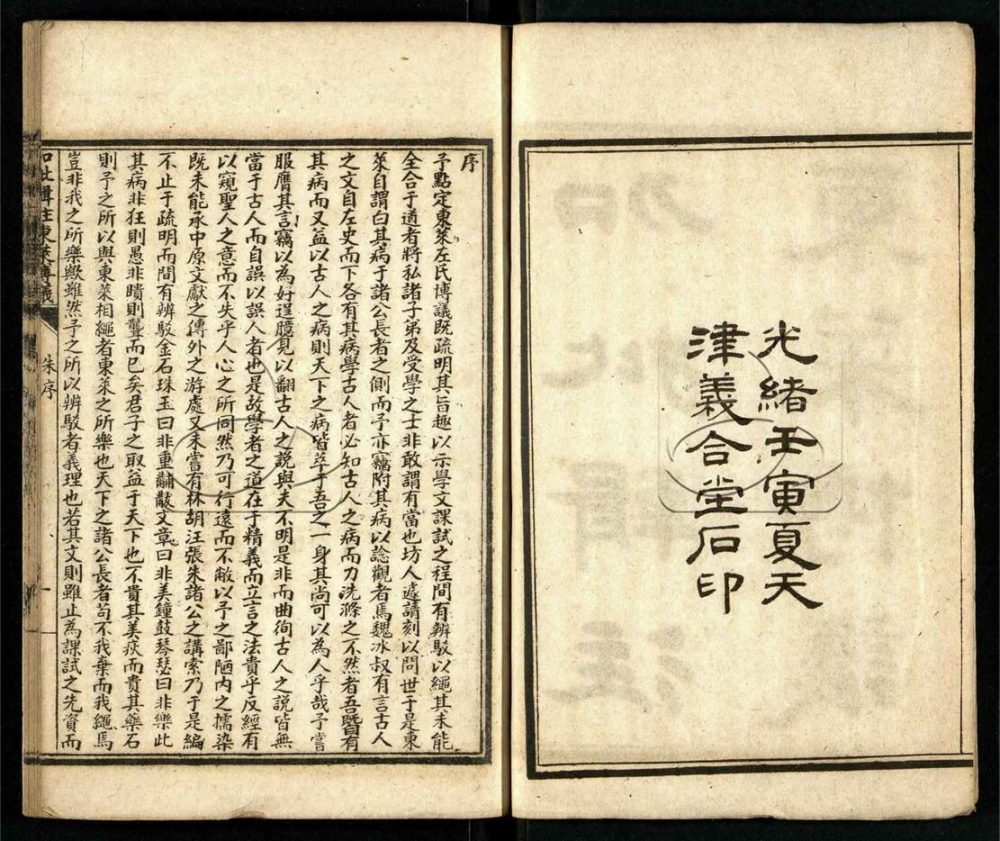 光緒壬寅夏天
津義合堂石印
序
予點定東萊左氏博議既疏明其旨趣以示學文課試之程間有辨駁以繩其未能
全合于道者將私諸子弟及受學之士非敢謂有當也坊人遽請刻以問世于是東
萊自謂白其病于諸公長者之側而予亦竊附其病以諗觀者焉魏冰叔有言古人
之文自左史而下各有其病學古人者必知古人之病而力洗滌之不然者吾暨有
其病而又益以古人之病則天下之病皆萃于吾之一身其尚可以為人乎哉予嘗
服膺其言竊以為好逞臆見以翻古人之說與夫不明是非而曲徇古人之說皆無
當于古人而自誤以誤人者也是故學者之道在于精義而立言之法貴乎反經有
以窺聖人之意而不失乎人心之所同然乃可行遠而不敝以予之鄙陋內之擩染
既未能承中原文獻之傳外之游處又未嘗有林胡汪張朱諸公之講索乃于是編
不止于疏明而間有辨駁金石珠玉曰非重黼黻文章曰非美鐘鼓琴瑟曰非樂此
其病非狂則愚非瞶則聾而已矣君子之取益于天下也不貴其美疢而貴其藥石
則予之所以與東萊相繩者東萊之所樂也天下之諸公長者苟不我棄而我繩焉
豈非我之所樂歟雖然予之所以辨駁者義理也若其文則雖止為課試之先資而
輯註東萊博議
朱序
一